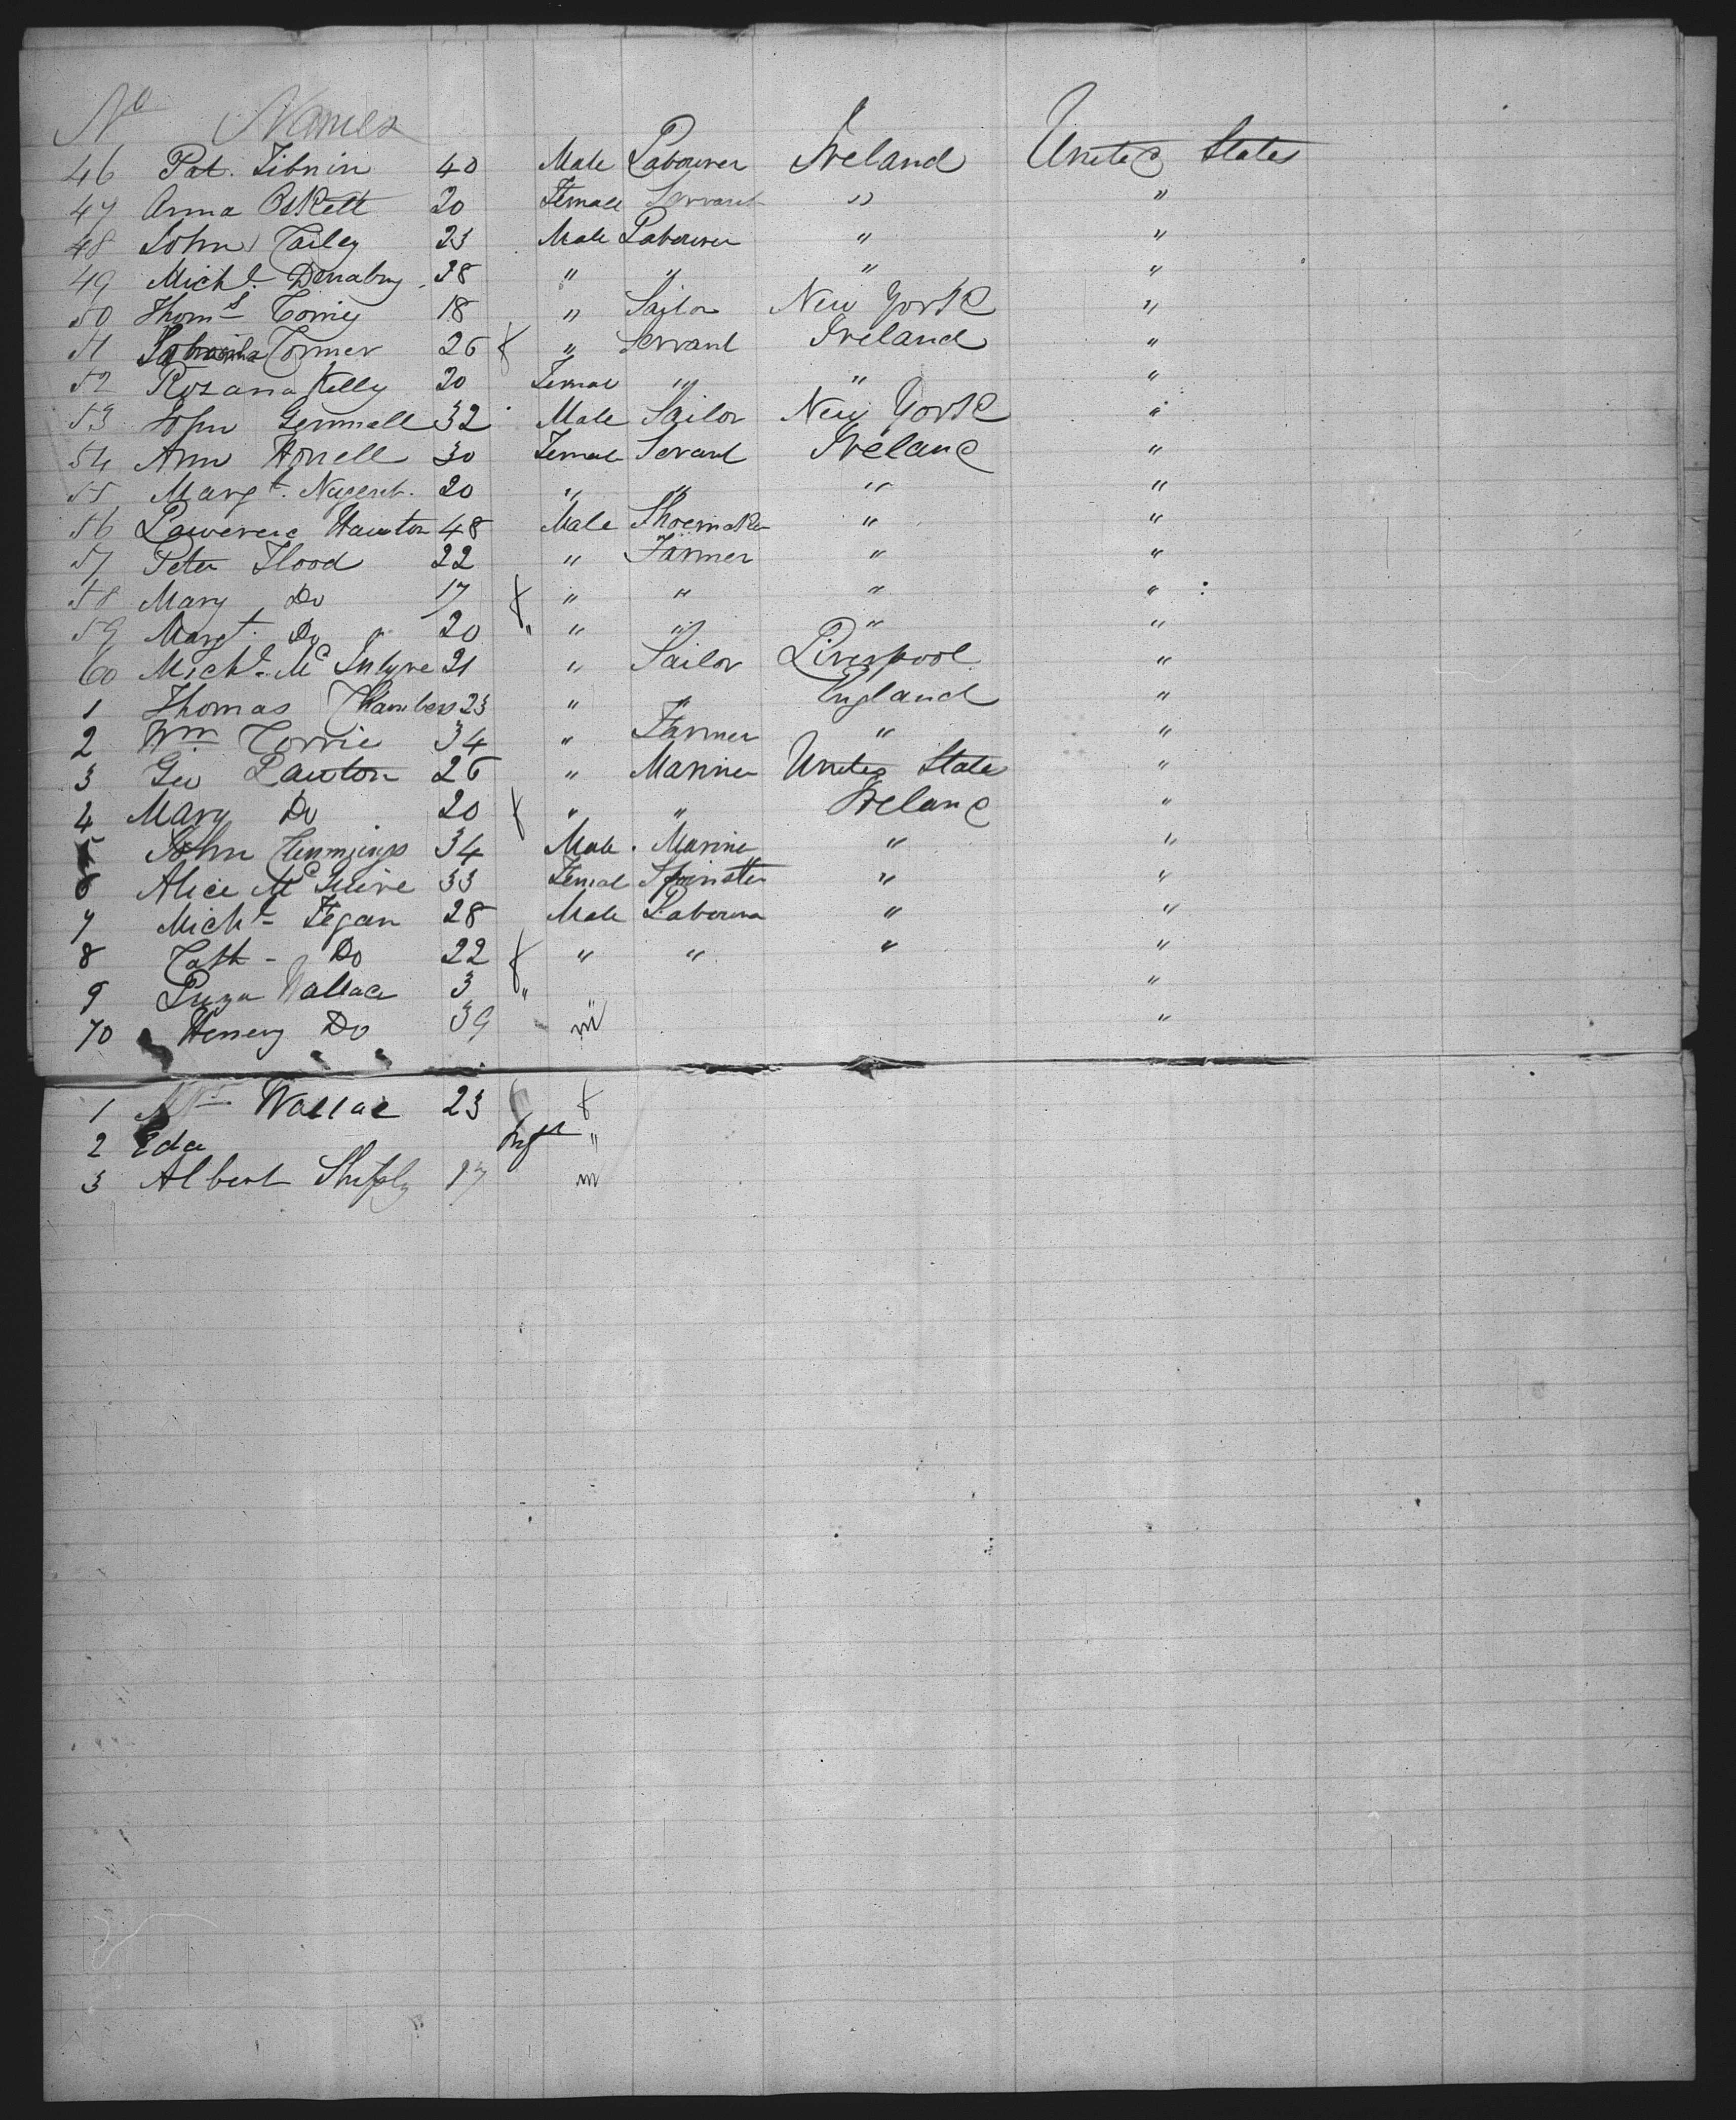 No Names
46 Pat. Tibnin 40 Male Labourer Ireland United States
47 Anna 20 Female Servant " "
48 John 23 Male Labourer " "
49 Michl. 38 " " " "
50 Thoms 18 " Sailor New York "
51 26 f " Servant Ireland "
52 Rozana Kelly 20 Female " " "
53 John Gemmell 32 Male Sailor New York "
54 Ann 30 Female Servant Ireland "
55 Margt. Nugent. 20 " " " "
56 Lawerence 48 Male Shoemaker " "
57 Peter Flood 22 " Farmer " "
58 Mary Do 17 f " " " "
59 Margt. Do 20 " " " " "
60 Michl. McIntyre 21 " Sailor Liverpool "
1 Thomas Chambers 23 " " England "
2 Wm Corrie 34 " Farmer " "
3 Geo Lawton 26 " Mariner United States "
4 Mary Do 20 f " " Ireland "
5 John 34 Male Marine " "
6 Alice 33 Female Spinster " "
7 Michl Fegan 28 Male Labourer " "
8 Cath - Do 22 f " " " "
9 Wallace 3 " "
70 Henery Do 39 m "
1 Wallace 23 f
2 Eda "
3 Albert 17 m